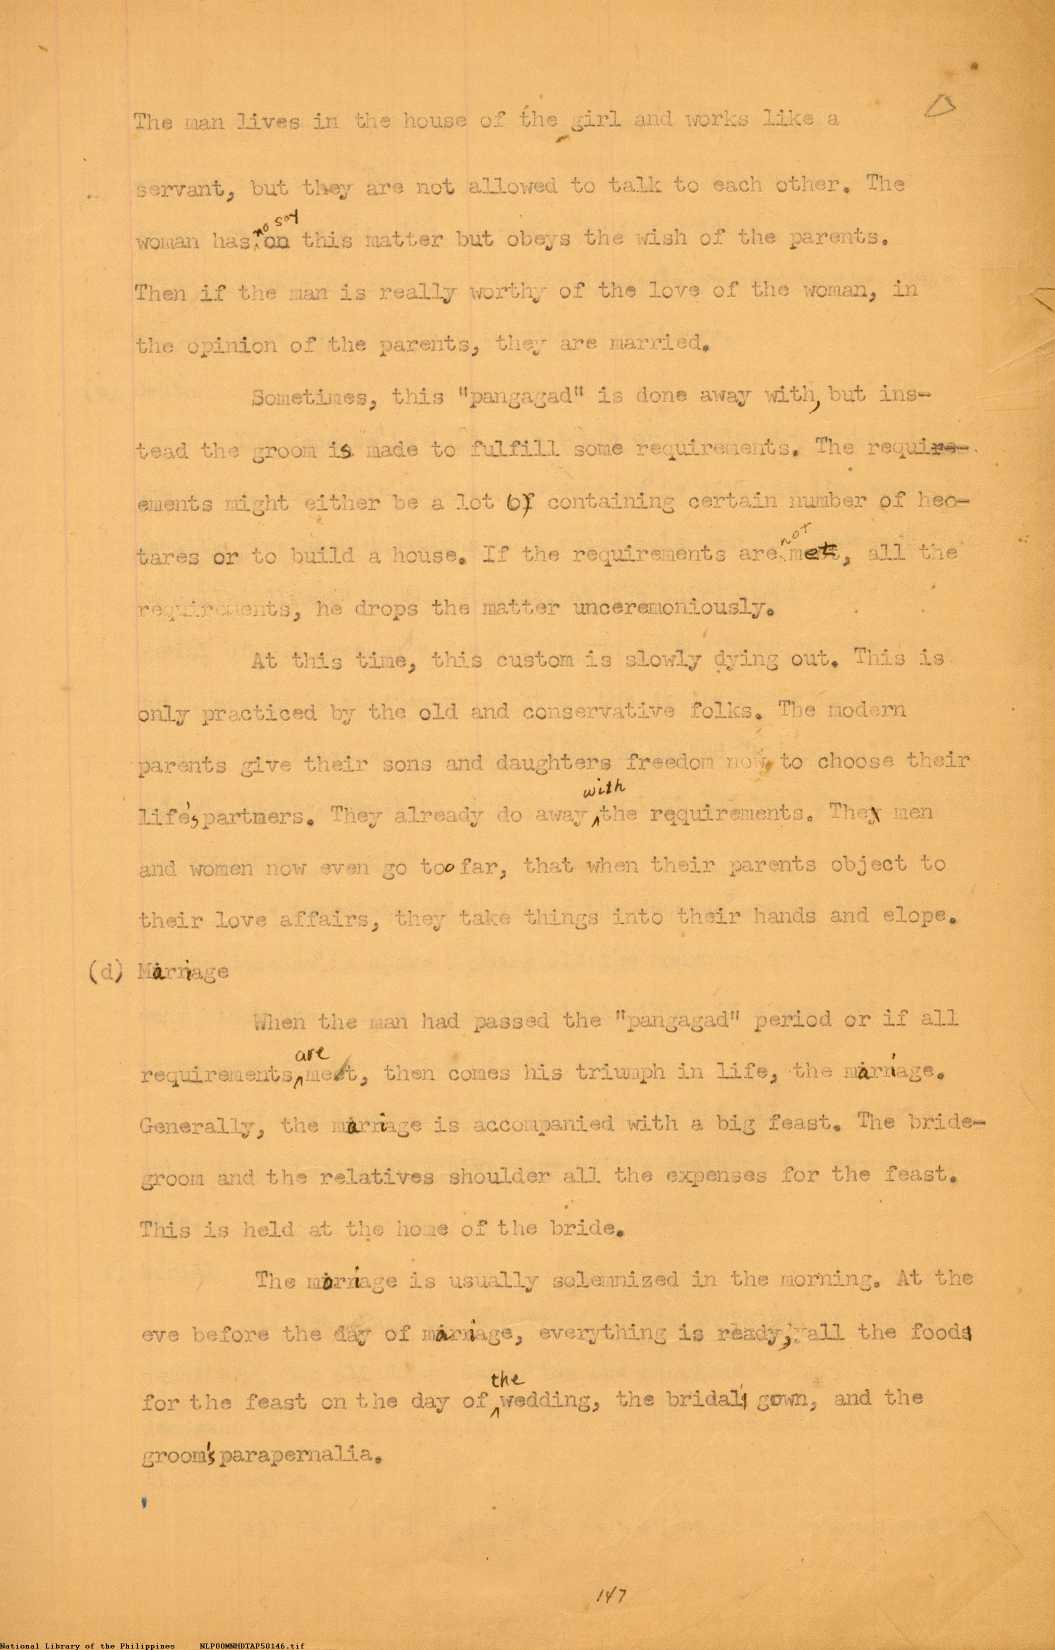 The man lives in the house of the girl and works like a
servant, but they are not allowed to talk to each other. The
woman has no say on this matter but obeys the wish of the parents.
Then if the man is really worthy of the love of the woman, in
the opinion of the parents, they are married.
Sometimes, this "pangagad" is done away with, but ins-
tead the groom is made to fulfill some requirements. The requi
ements might either be a lot of containing certain number of hec-
tares or to build a house. If the requirements are not met, all the
requirements, he drops the matter unceremoniously.
At this time, this custom is slowly dying out. This is
only practiced by the old and conservative folks. The modern
parents give their sons and daughters freedom now to choose their
life's partners. They already do away with the requirements. The men
and women now even go too far, that when their parents object to
their love affairs, they take things into their hands and elope.
(d) Marriage
When the man had passed the "pangagad" period or if all
requirements are met, then comes his triumph in life, the marriage.
Generally, the marriage is accompanied with a big feast. The bride-
groom and the relatives shoulder all the expenses for the feast.
This is held at the home of the bride.
The marriage is usually solemnized in the morning. At the
eve before the day of marriage, everything is ready, all the foods
for the feast on the day of the wedding, the bridal gown, and the
groom's parapernalia.
147
National Library of the Philippines NLP00MNHDTAP50146.tif